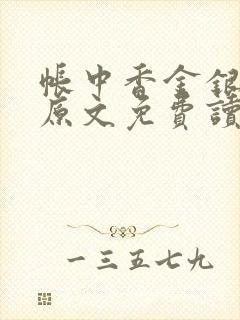 帳中香金銀
原文免費讀
一三五七九